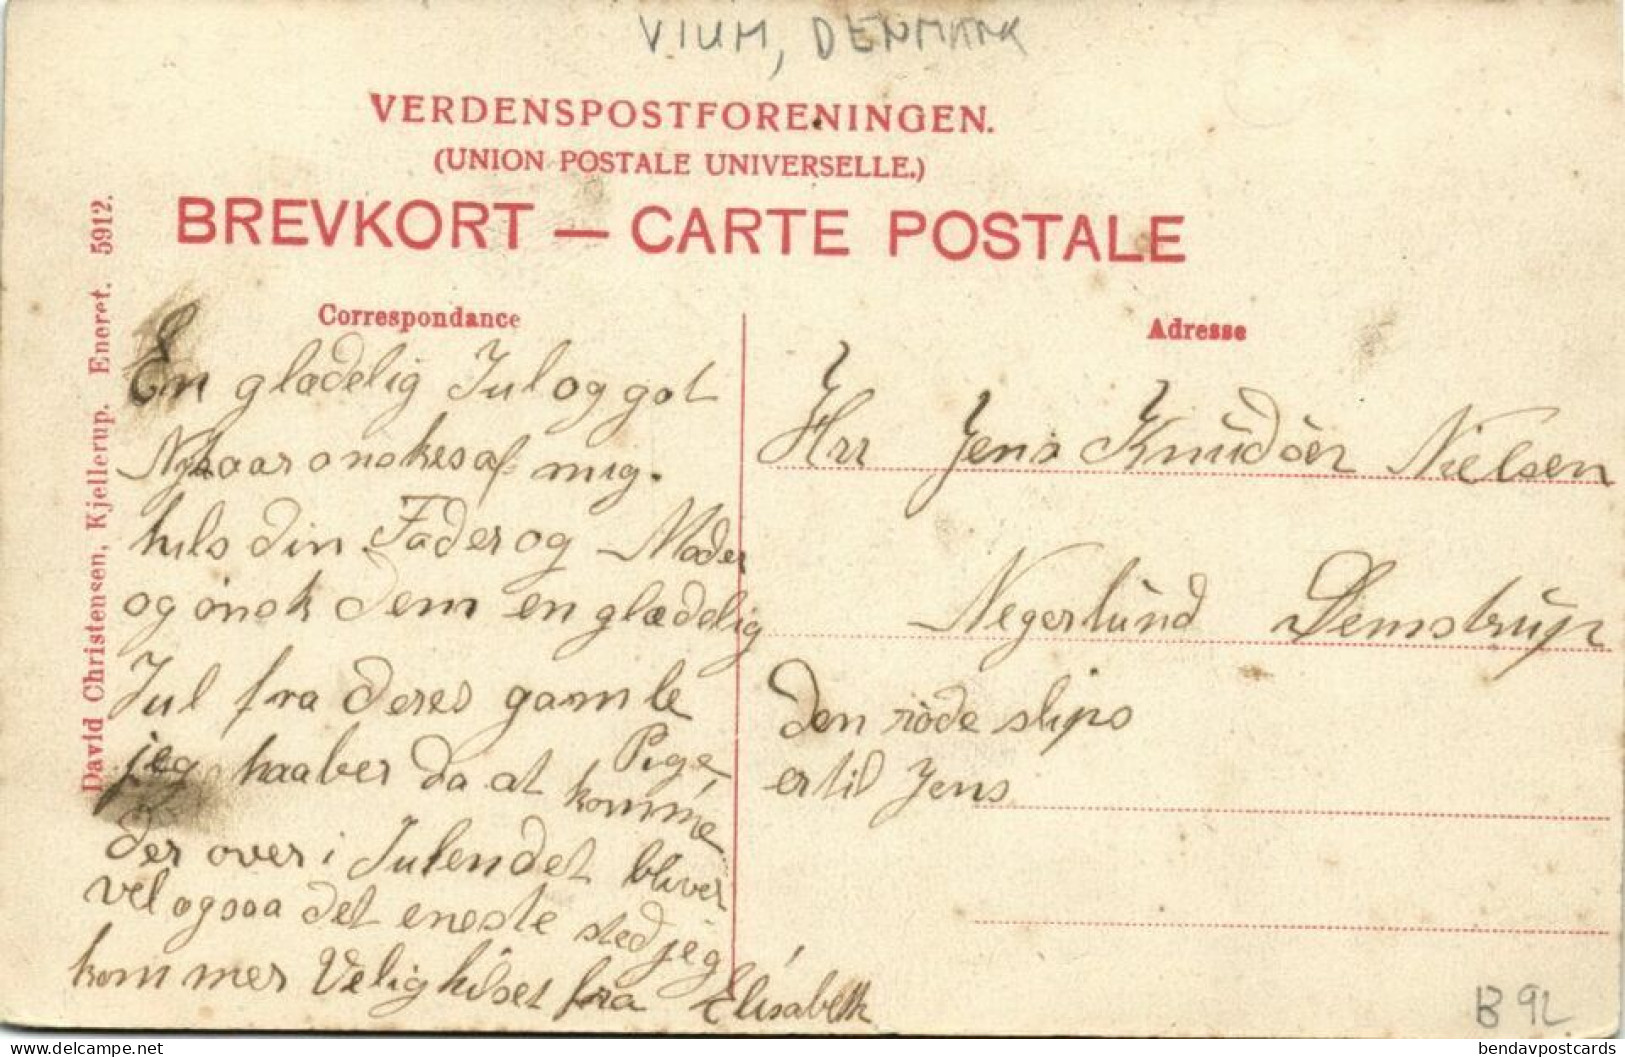 VIUM, DENMARK
VERDENSPOSTFORENINGEN.
(UNION POSTALE UNIVERSELLE.)
BREVKORT — CARTE POSTALE
David Christensen, Kjellerup. Eneret. 5912.
Correspondance
En glædelig Jul og got
Nytaar onskes af mig.
hils din Fader og Moder
og ønsk dem en glædelig
Jul fra deres gamle
Pige
jeg haaber da at komme
der over i Julen det bliver
vel ogsaa det eneste sted jeg
kommer Velig hilset fra Elisabeth
Adresse
Hrr Jens Knudsen Nielsen
Negerlund Demstrup
den røde slips
er til Jens
B 92
bendavpostcards